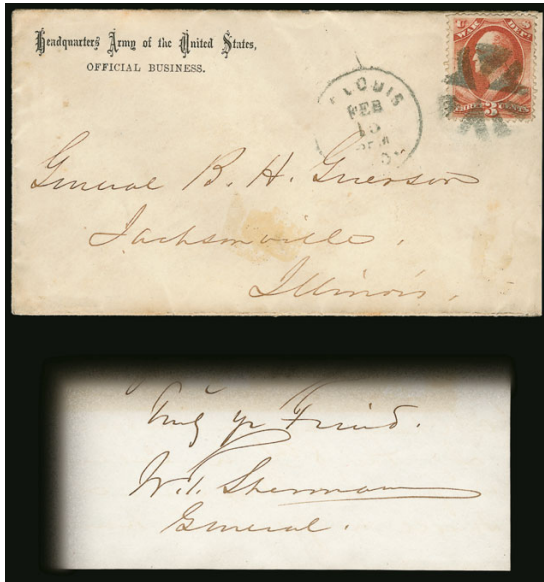 Headquarters Army of the United States,
OFFICIAL BUSINESS.
U S
WAR DEPT.
THREE 3 CENTS
LOUIS
FEB
General B. H. Grierson
Jacksonville,
Illinois.
Truly yr Friend.
W. T. Sherman
General.